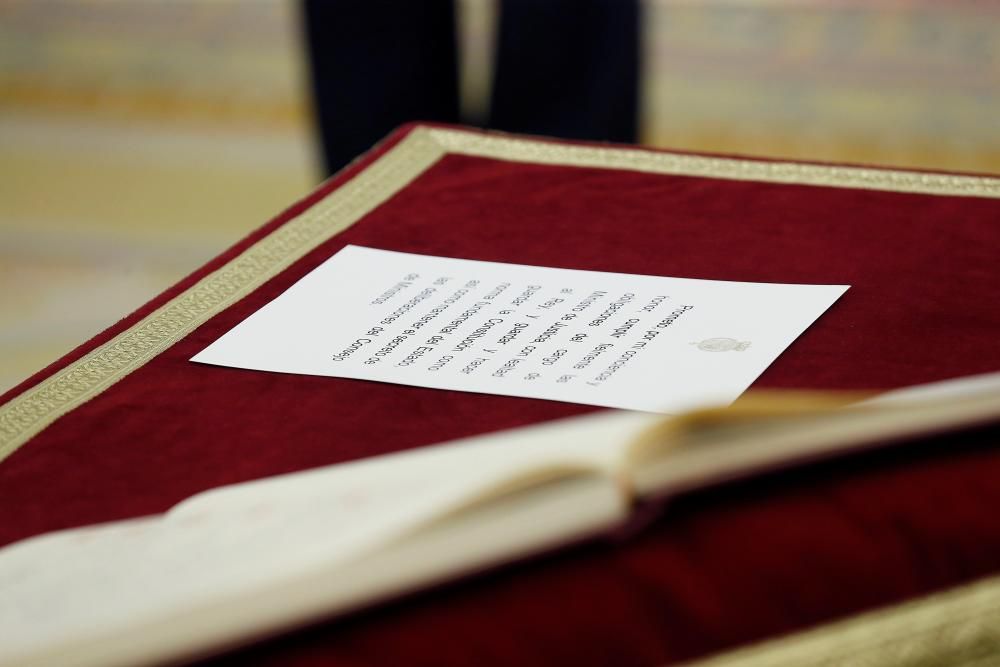 Prometo, por mi conciencia y
honor, cumplir fielmente las
obligaciones del cargo de
Ministro de Justicia con lealtad
al Rey, y guardar y hacer
guardar la Constitución como
norma fundamental del Estado,
así como mantener el secreto de
las deliberaciones del Consejo
de Ministros.